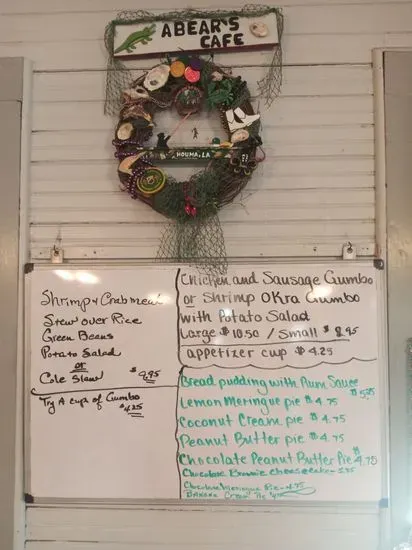 ABEAR'S
CAFE
HOUMA, LA
Shrimp & Crabmeat
Stew over Rice
Green Beans
Potato Salad
or
Cole Slaw $9.95
Try A cup of Gumbo
$4.25
Chicken and Sausage Gumbo
or Shrimp Okra Gumbo
with Potato Salad
Large $10.50 / Small $8.95
appetizer cup $4.25
Bread pudding with Rum Sauce
$5.25
Lemon Meringue pie $4.75
Coconut Cream pie $4.75
Peanut Butter pie $4.75
Chocolate Peanut Butter Pie $4.75
Chocolate Brownie Cheesecake
Chocolate Meringue Pie - 4.75
Banana Cream Pie